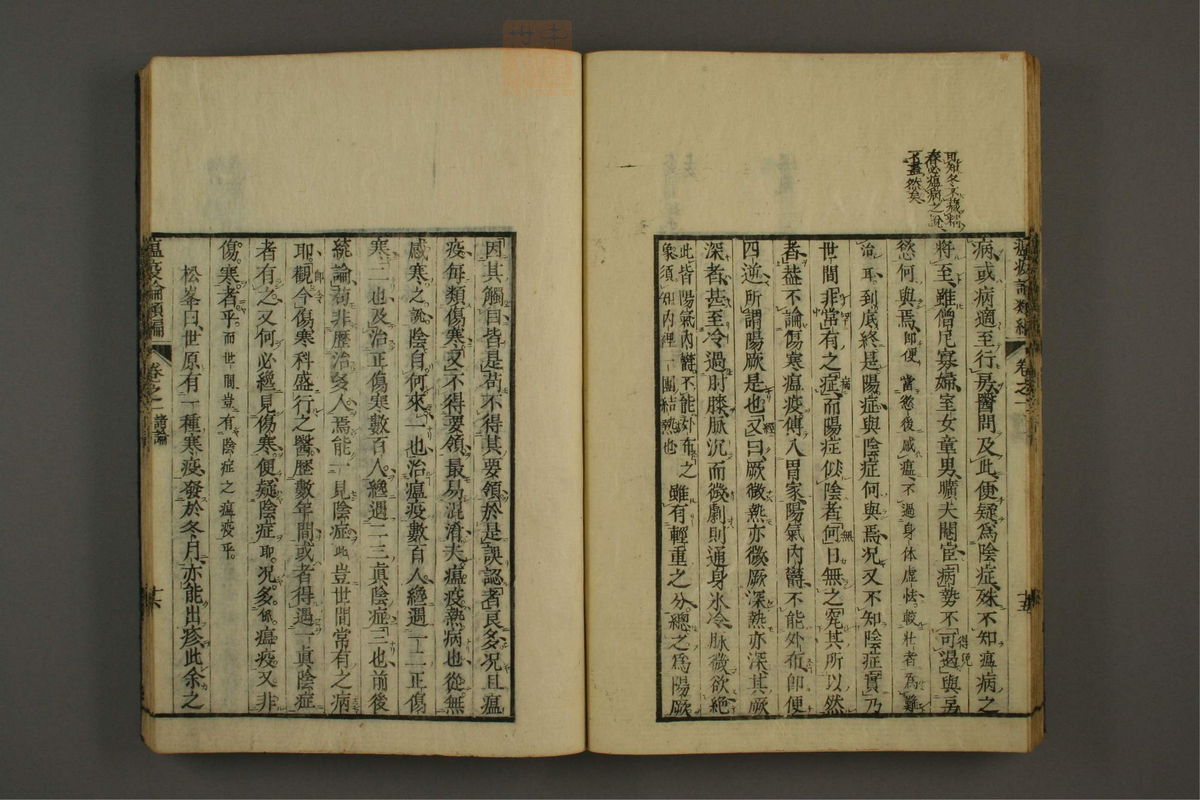 可知冬不藏精
春必瘟病之說
不盡然矣
病或病適至行房醫問及此便疑為陰症殊不知瘟病之
將至雖僧尼寡婦室女童男曠夫閹宦病勢不可遏與房
慾何與焉即便當慾後感瘟不過身体虛怯較壯者為難
治耳到底終是陽症與陰症何與焉况又不知陰症實乃
世間非常有之症而陽症似陰者何日無之究其所以然
者蓋不論傷寒瘟疫傳入胃家陽氣內鬱不能外布即便
四逆所謂陽厥是也又曰厥微熱亦微厥深熱亦深其厥
深者甚至冷過肘膝脉沉而微劇則通身冰冷脉微欲絕
此皆陽氣內鬱不能外布之
象須 內裡一團結熱也雖有輕重之分總之為陽厥
瘟疫論類編 卷之一 十五
因其觸目皆是苟不得其要領於是誤認者良多况且瘟
疫每類傷寒又不得要領最易混淆夫瘟疫熱病也從無
感寒之說陰自何來一也治瘟疫數百人纔遇一二正傷
寒二也及治正傷寒數百人纔遇二三真陰症三也前後
統論苟非歷治多人焉能一見陰症此豈世間常有之病
耶觀今傷寒科盛行之醫歷數年間或者得遇一真陰症
者有之又何必纔見傷寒便疑陰症耶况多係瘟疫又非
傷寒者乎而世間豈有陰症之瘟疫乎
松峯曰世原有一種寒疫發於冬月亦能出疹此余之
瘟疫論類編 卷之一 諸論 十六